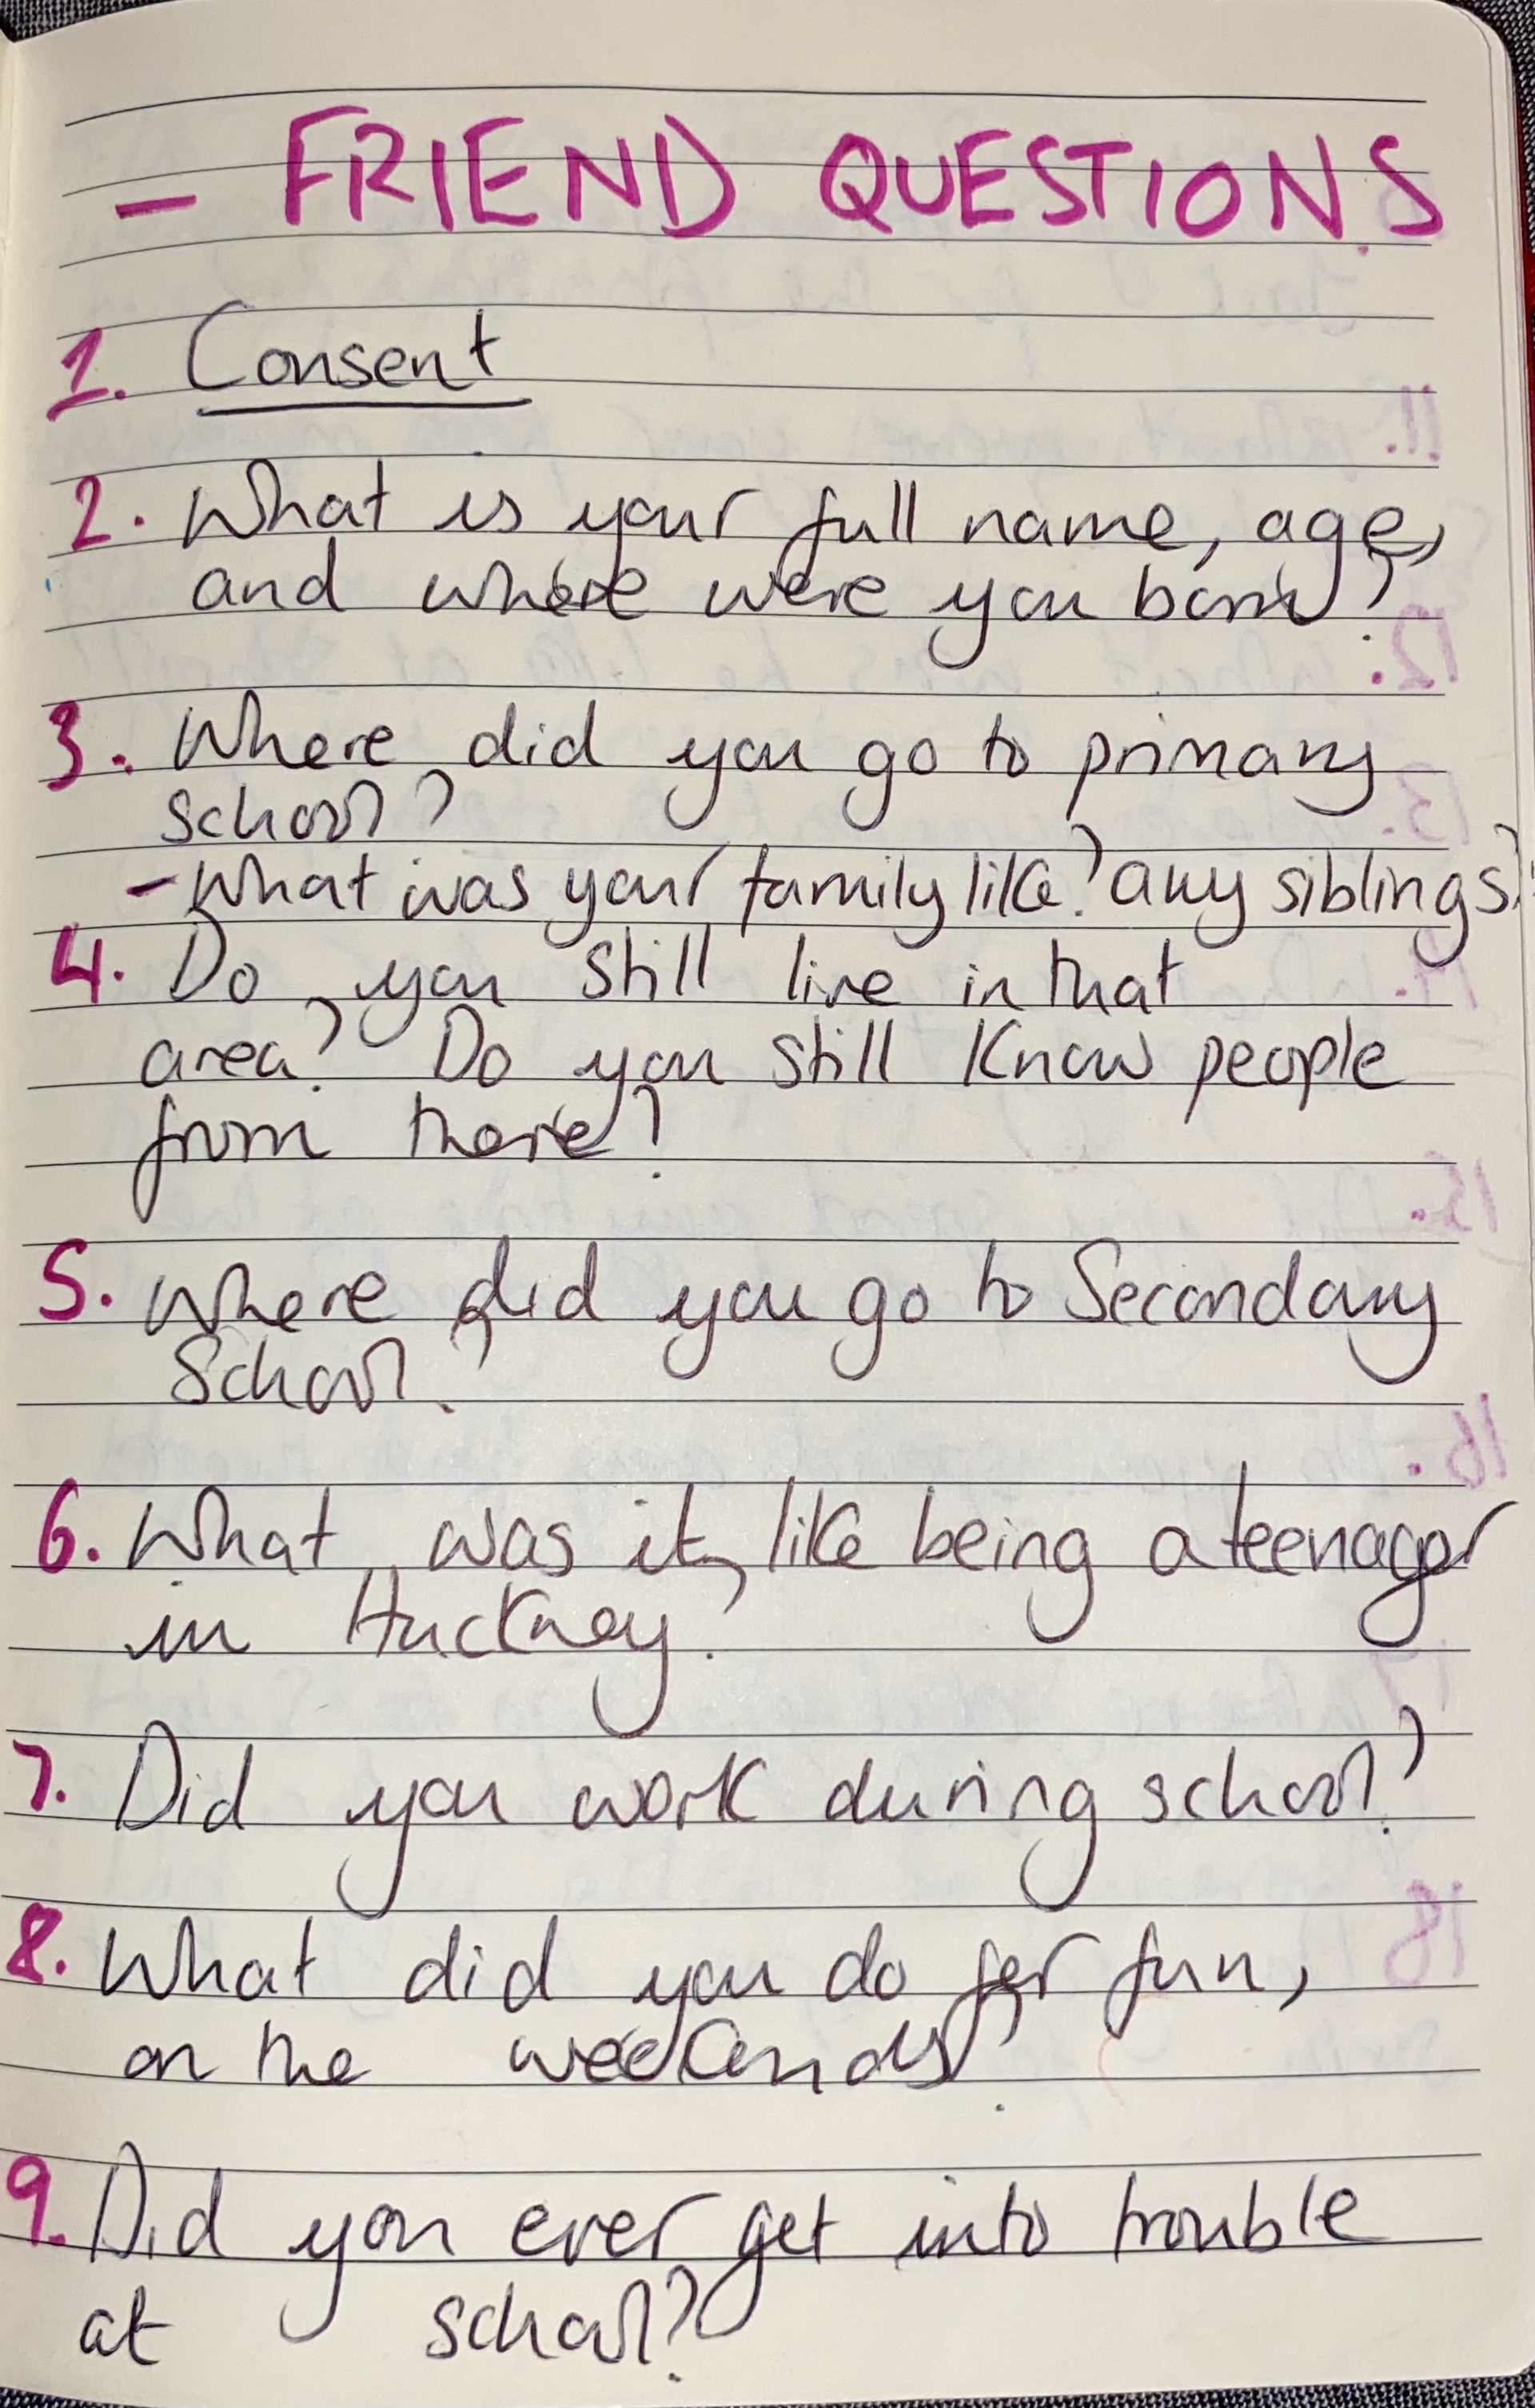 - FRIEND QUESTIONS
1. Consent
2. What is your full name, age,
and where were you born?
3. Where did you go to primary
school?
- What was your family like? any siblings?
4. Do you still live in that
area? Do you still know people
from there?
5. Where did you go to Secondary
School?
6. What was it like being a teenager
in Hackney?
7. Did you work during school?
8. What did you do for fun,
on the weekends?
9. Did you ever get into trouble
at school?
11.
12.
13.
15.
16.
18